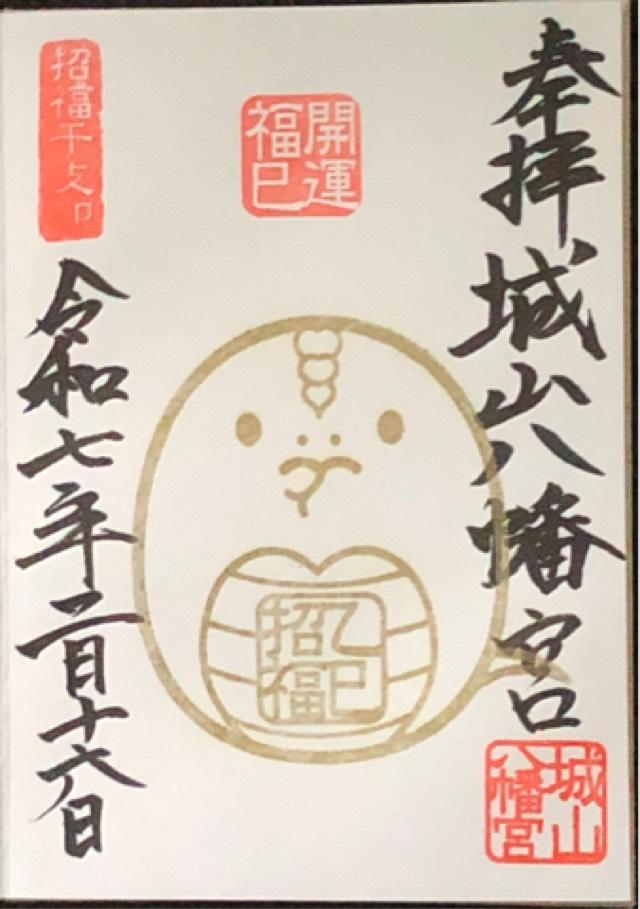 奉拝城山八幡宮
城山
八幡宮
開運
福巳
乙巳
招福
招福干支印
令和七年二月十六日